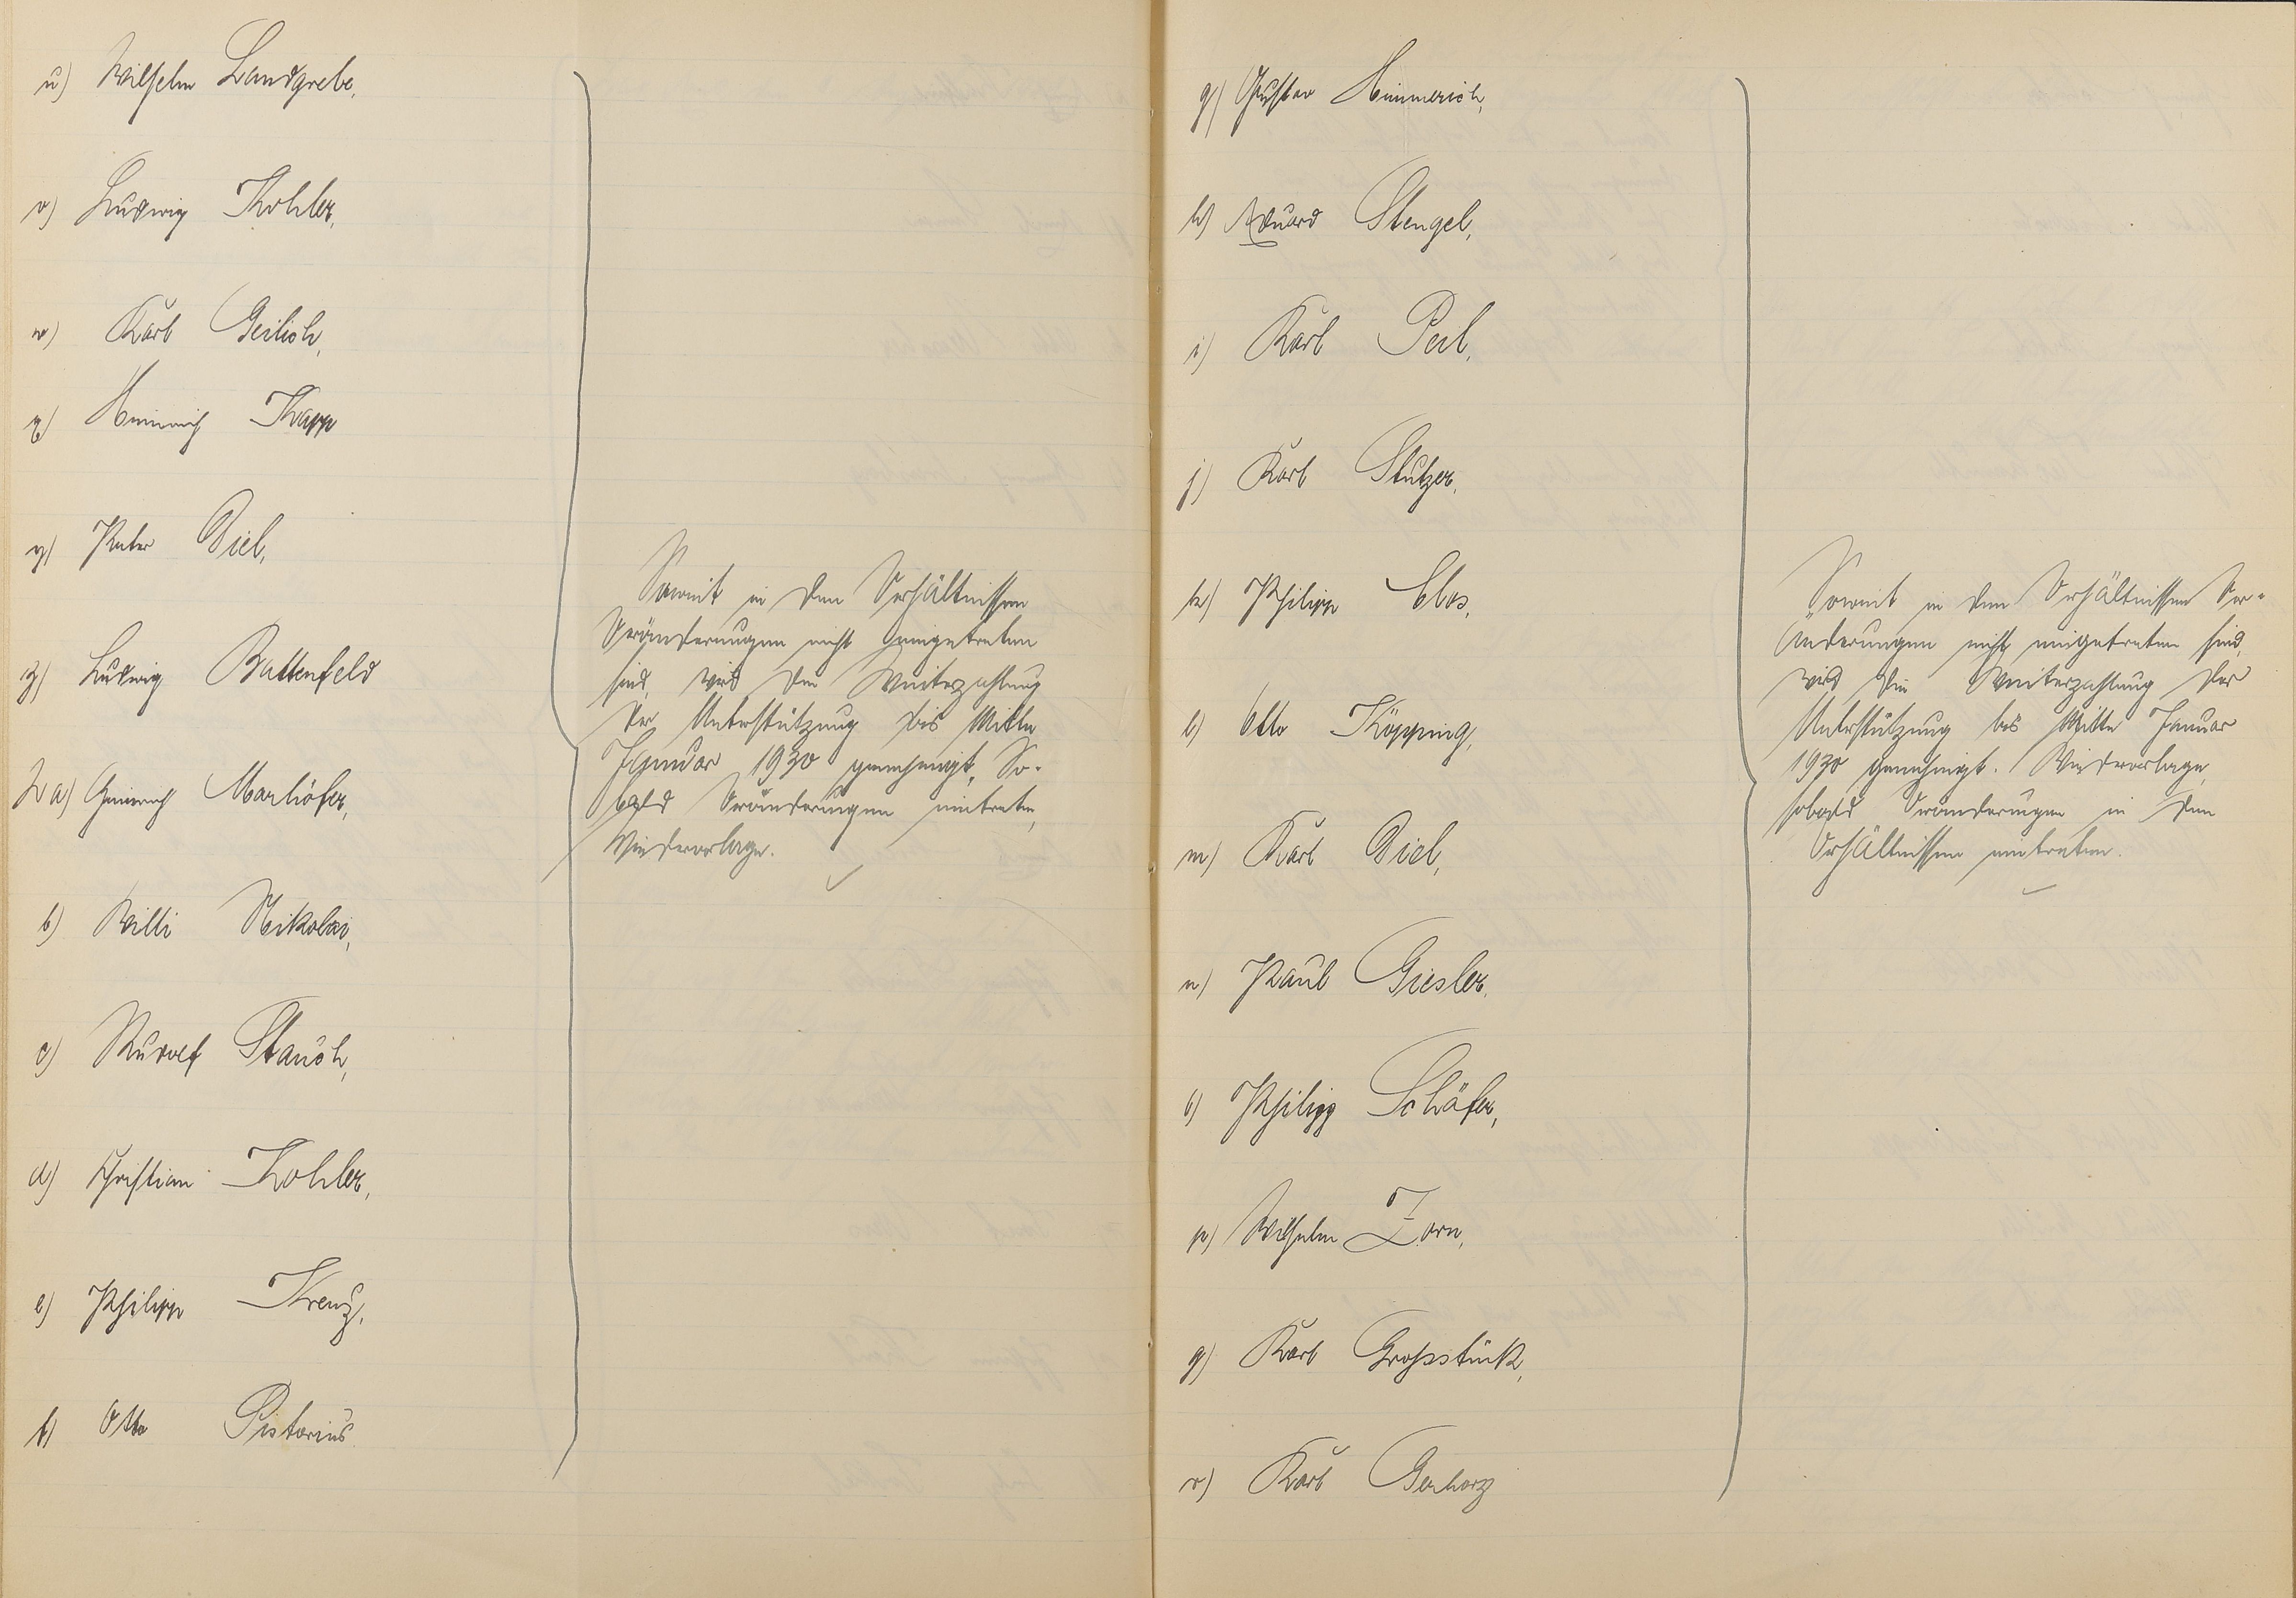 u) Wilhelm Landgrebe,
v) Ludwig Kohler,
w) Karl Geilich,
x) Heinrich Knapp
y) Peter Diel,
z) Ludwig Battenfeld
2a) Heinrich Marhöfer,
b) Willi Nikolai,
c) Rudolf Stauch,
d) Christian Kohler,
e) Philipp Kreuz,
f) Otto Pistorius.
Soweit in den Verhältnissen
Veränderungen nicht eingetreten
sind, wird die Weiterzahlung
der Unterstützung bis Mitte
Januar 1930 genehmigt, So-
bald Veränderungen eintreten,
Wiedervorlage.
g) Gustav Himmerich,
h) Eduard Stengel,
i) Karl Peil,
j) Karl Stutzer,
k) Philipp Clos,
l) Otto Köpping,
m) Karl Diel,
n) Paul Giesler,
o) Philipp Schäfer,
p) Wilhelm Zorn,
q) Karl Großstück,
r) Karl Gerharz
Soweit in den Verhältnissen Ver-
änderungen nicht eingetreten sind,
wird die Weiterzahlung der
Unterstützung bis Mitte Januar
1930 genehmigt. Wiedervorlage,
sobald Veränderungen in den
Verhältnissen eintreten.